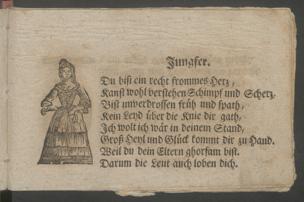 Jungfer.
Du bist ein recht frommes Hertz,
Kanst wohl verstehen Schimpf und Schertz.
Bist unverdrossen früh und spath,
Kein Leyd über die Knie dir gath,
Ich wolt ich wär in deinem Stand,
Groß Heyl und Glück kommt dir zu Hand.
Weil du dein Eltern ghorsam bist.
Darum die Leut auch loben dich.